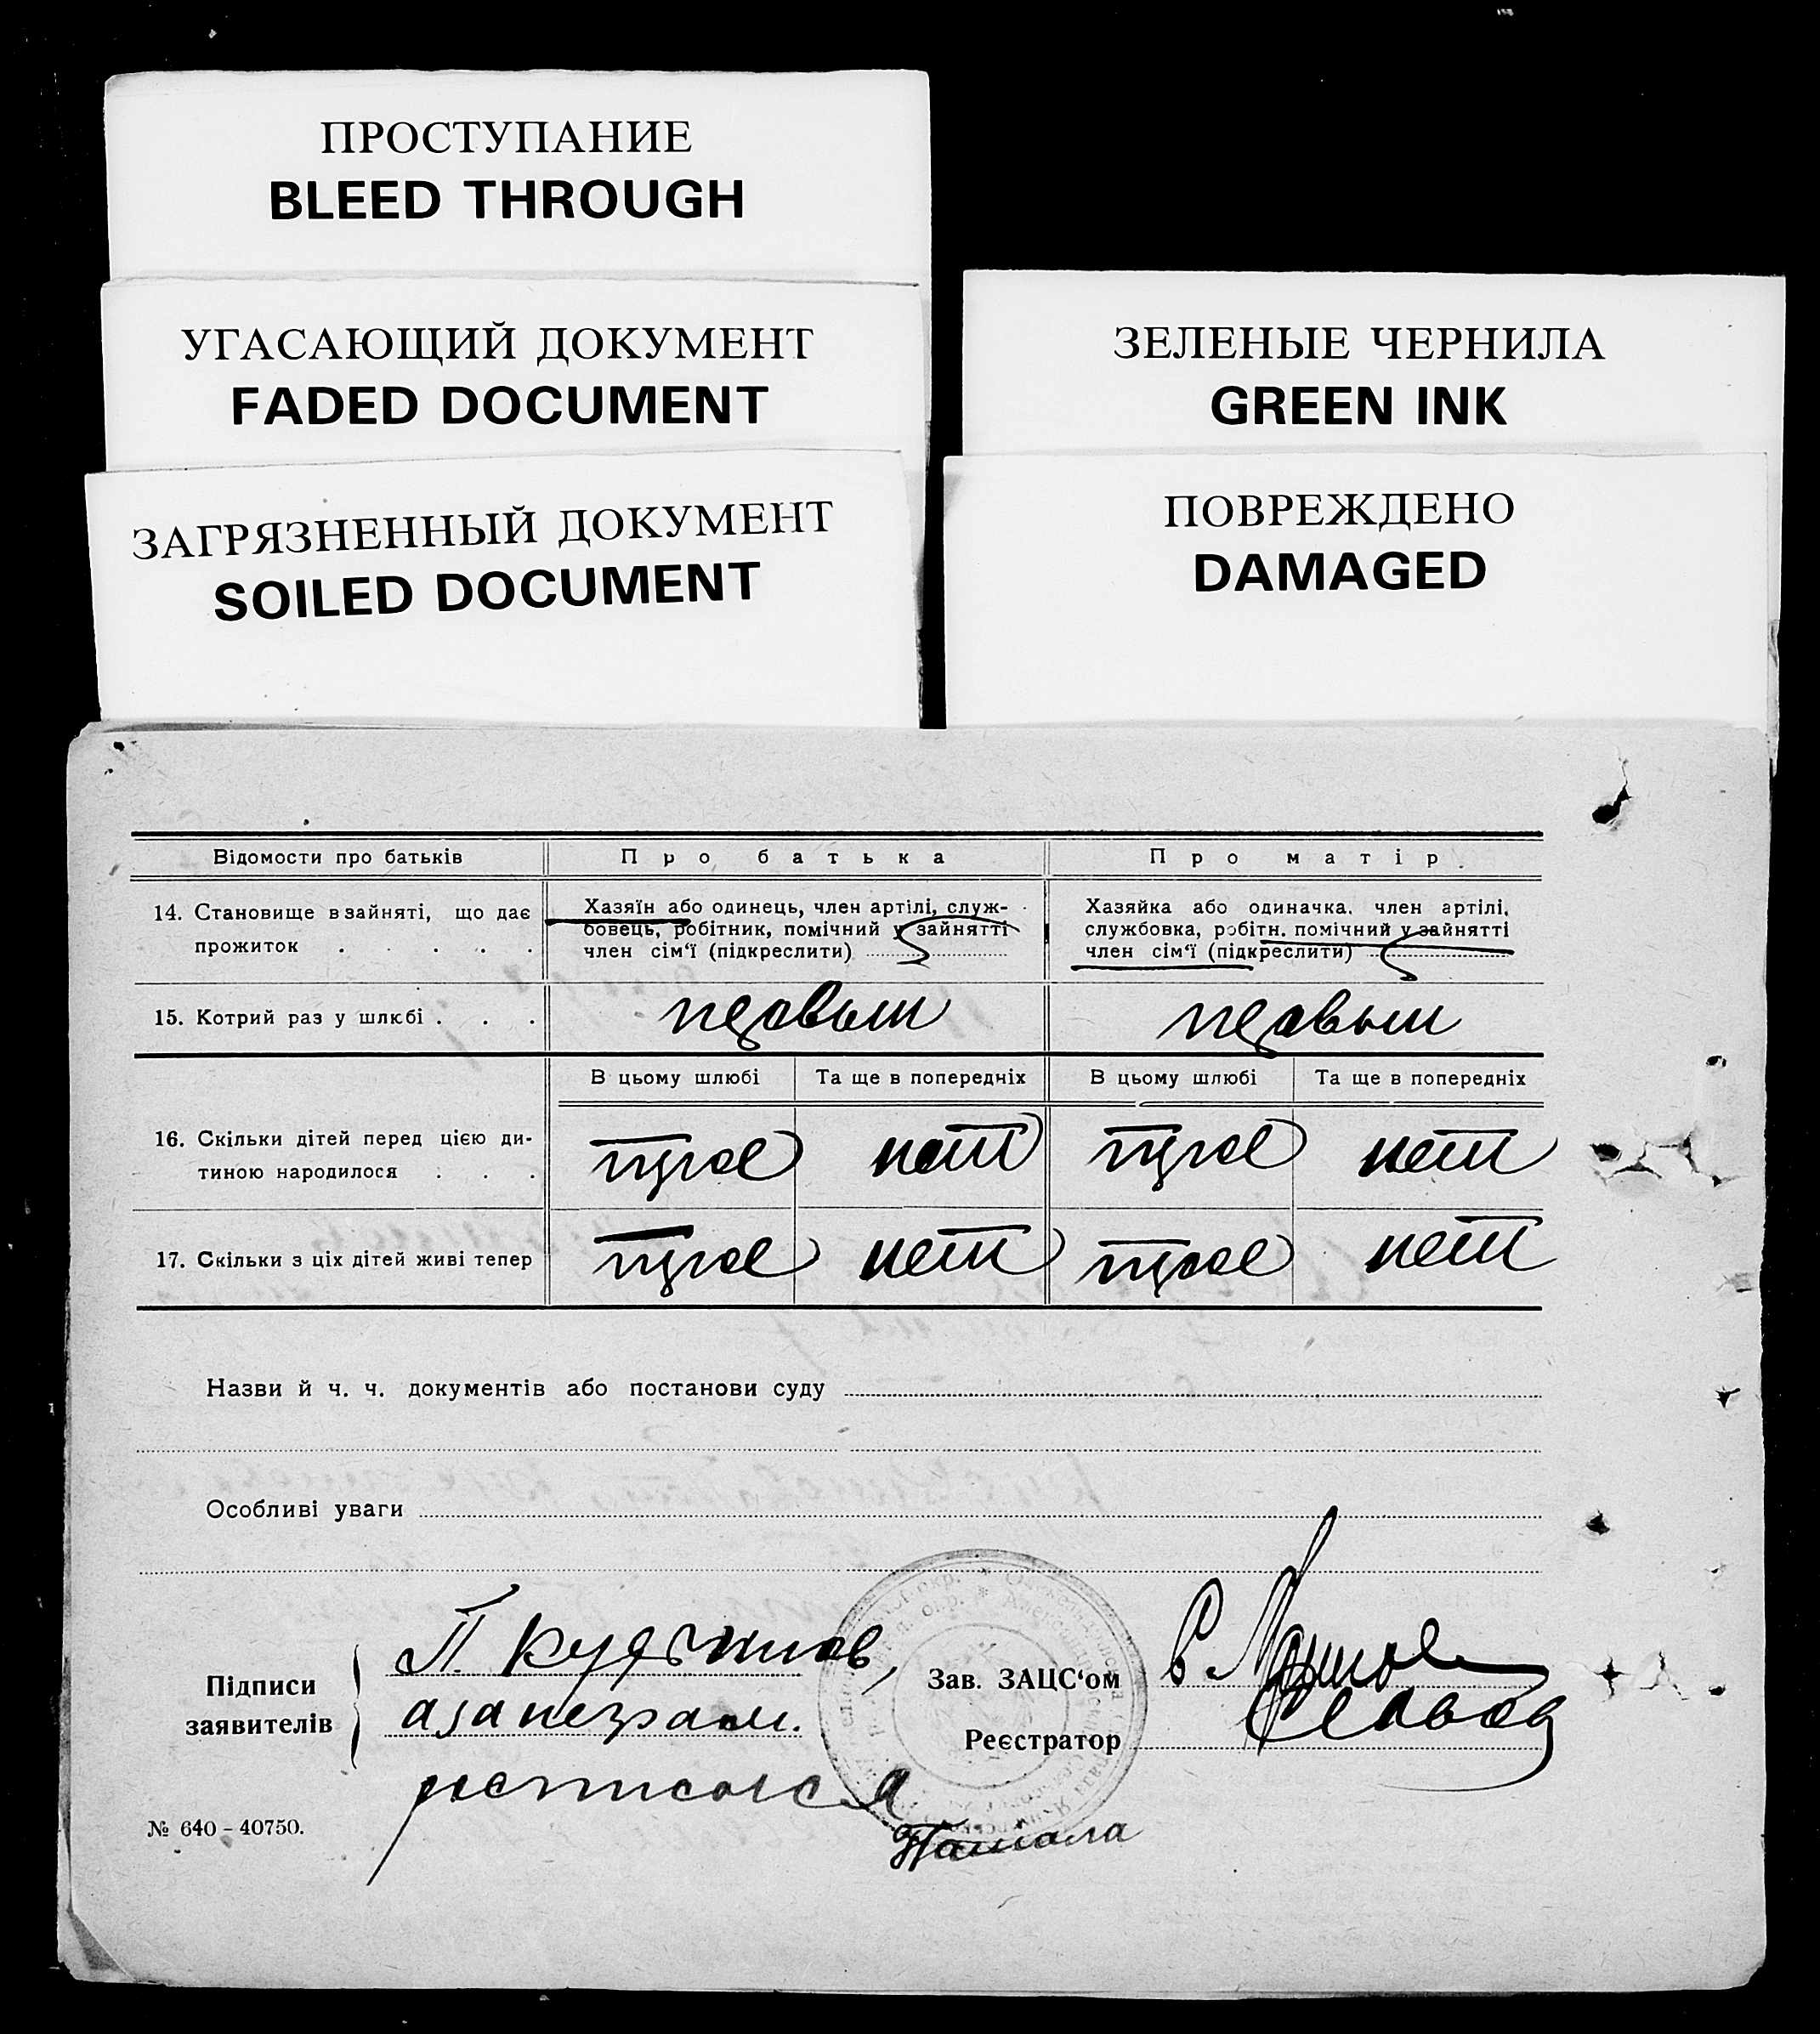 ПРОСТУПАНИЕ
BLEED THROUGH
УГАСАЮЩИЙ ДОКУМЕНТ
FADED DOCUMENT
ЗЕЛЕНЫЕ ЧЕРНИЛА
GREEN INK
ЗАГРЯЗНЕННЫЙ ДОКУМЕНТ
SOILED DOCUMENT
ПОВРЕЖДЕНО
DAMAGED
Відомости про батьків Про батька Про матір.
14. Становище в зайняті, що дає
прожиток . . . . .
Хазяїн або одинець, член артілі, служ-
бовець, робітник, помічний у зайнятті
член сім'ї (підкреслити)
Хазяйка або одиначка, член артілі,
службовка, робітн. помічний у зайнятті
член сім'ї (підкреслити)
15. Котрий раз у шлюбі . . . первым первым
В цьому шлюбі Та ще в попередніх В цьому шлюбі Та ще в попередніх
16. Скільки дітей перед цією ди-
тиною народилося . . .
трое нет трое нет
17. Скільки з ціх дітей живі тепер трое нет трое нет
Назви й ч. ч. документів або постанови суду
Особливі уваги
Підписи
заявителів
П.
а за неграм.
росписался
Зав. ЗАЦС'ом
Реєстратор
№ 640 - 40750.